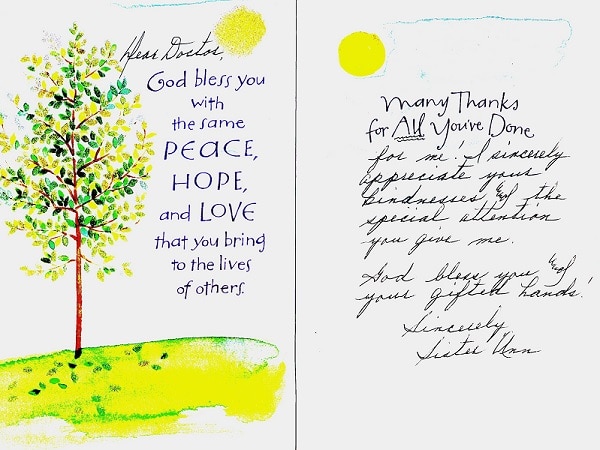 Dear Doctor,
God bless you
with
the same
PEACE,
HOPE,
and LOVE
that you bring
to the lives
of others.
Many Thanks
for All You've Done
for me! I sincerely
appreciate your
kindnesses & the
special attention
you give me.
God bless you &
your gifted hands!
Sincerely
Sister Ann